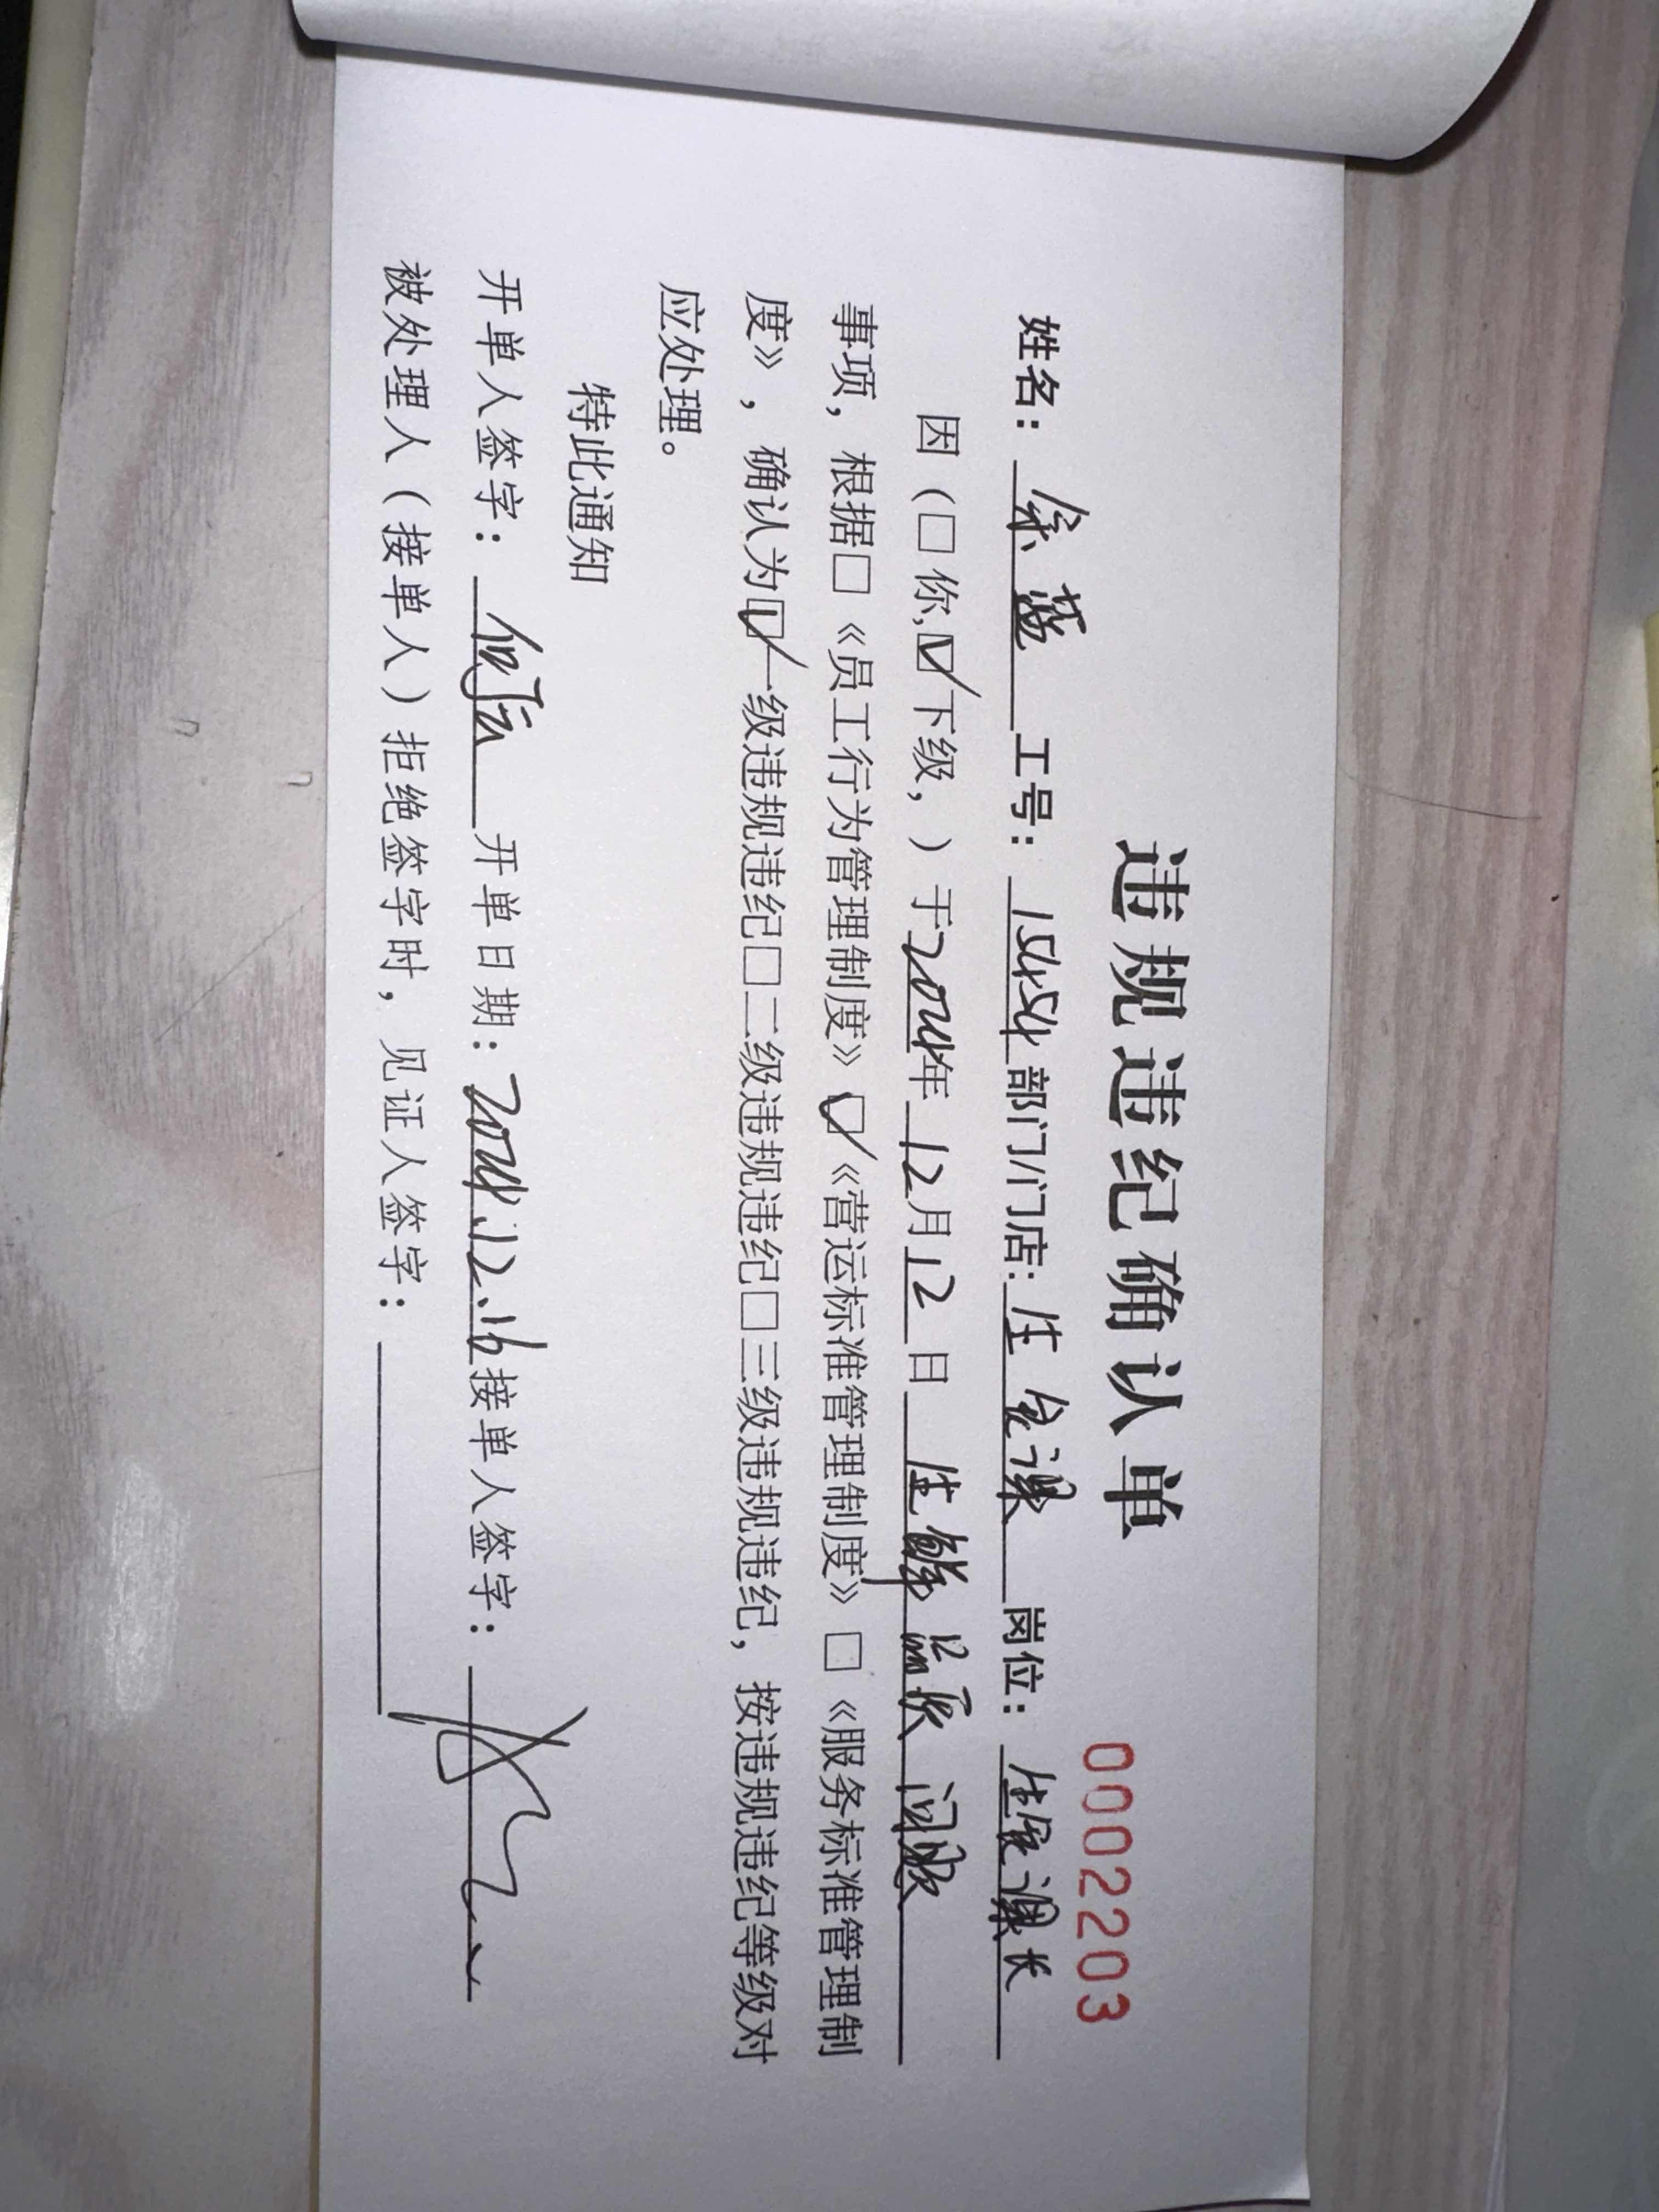 违规违纪确认单
0002203
姓名：余燕 工号：15454 部门/门店：生宝课 岗位：生宝课长
因（□你，☑下级，）于2024年12月12日 生鲜品质问题
事项，根据□《员工行为管理制度》☑《营运标准管理制度》□《服务标准管理制
度》，确认为☑一级违规违纪□二级违规违纪□三级违规违纪，按违规违纪等级对
应处理。
特此通知
开单人签字： 开单日期：2024.12.16 接单人签字：
被处理人（接单人）拒绝签字时，见证人签字：